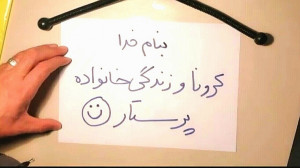 بنام خدا
کرونا و زندگی خانواده
پرستار